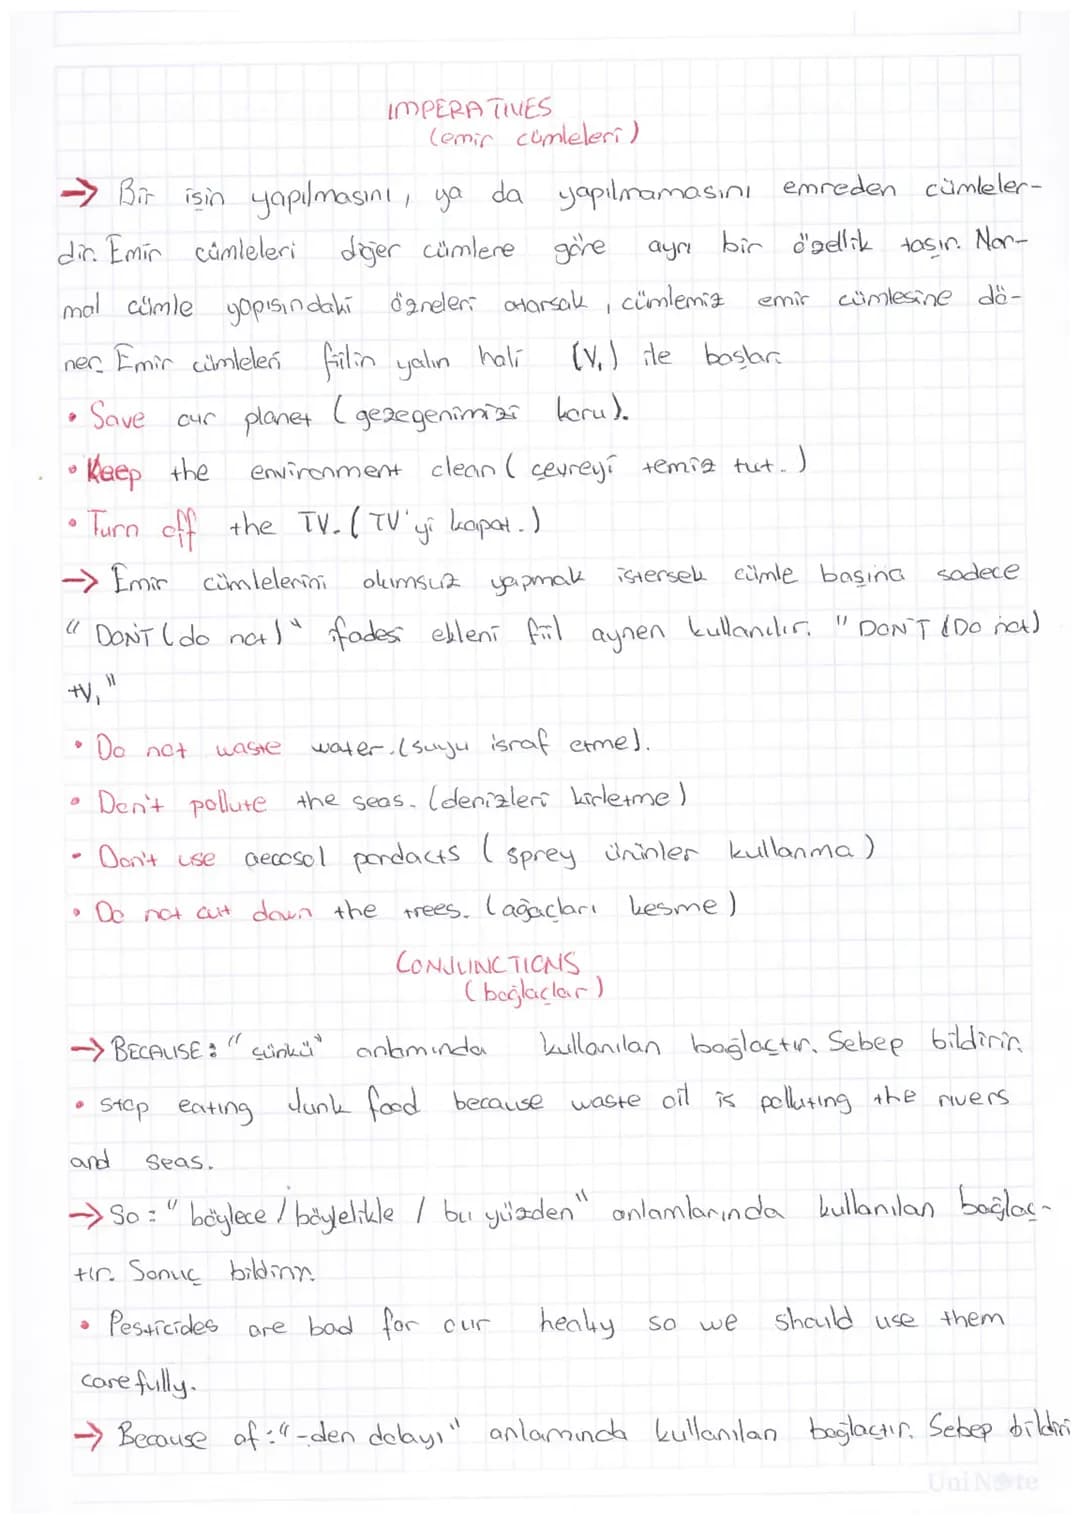 IMPERATIVES
(emir cümleleri)
→ Bir işin yapılmasını, ya da yapılmamasını emreden cümleler-
dir. Emir cümleleri diğer cümlere göre ayrı bir özellik taşır. Nor-
mal cümle yapısındaki özneleri atarsak, cümlemiz emir cümlesine dö-
ner. Emir cümleleri fiilin yalın hali (V₁) ile başlar.
• Save our planet (gezegenimizi koru).
• Keep the environment clean (çevreyi temiz tut.)
• Turn off the TV. (TV'yi kapat.)
→ Emir cümlelerini olumsuz yapmak istersek cümle başına sadece
"DON'T (do not)" ifadesi ekleni fiil aynen kullanılır. "DON'T (Do not)
+V₁"
• Do not waste water. (suyu israf etme).
• Don't pollute the seas. (denizleri kirletme)
• Don't use aecosol pordacts (sprey ürünler kullanma)
• Do not cut down the trees. (ağaçları kesme)
CONJUNCTIONS
(bağlaçlar)
→ BECAUSE: "çünkü" anlamında kullanılan bağlaçtır. Sebep bildirir.
• Stop eating Junk food because waste oil is polluting the rivers
and seas.
→ So: "böylece / böylelikle / bu yüzden" anlamlarında kullanılan bağlaç-
tır. Sonuç bildirir.
• Pesticides are bad for our healty so we should use them
carefully.
→ Because of: "-den dolayı" anlamında kullanılan bağlaçtır. Sebep bildiri
UniNote